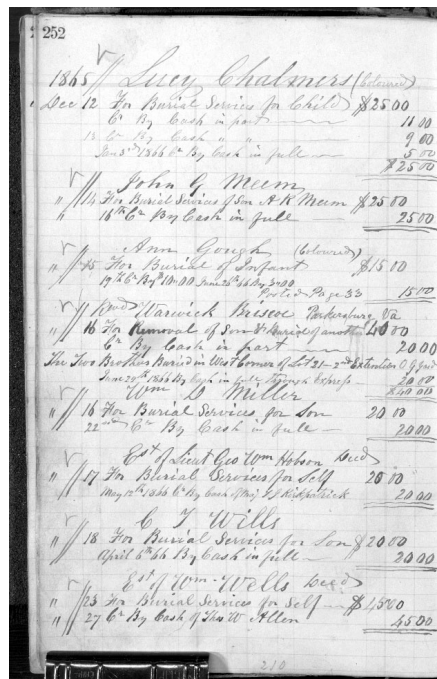 252
1865 // Lucy Chalmers (Coloured)
Dec 12 For Burial Services for Child $25 00
Cr By Cash in part 11 00
13 Cr By Cash " " 9 00
Jan 3rd 1866 Cr By Cash in full 5 00
$25 00
// John G Meem
" 14 For Burial Services of Son A K Meem $25 00
" 16th Cr By Cash in full 25 00
Ann Gough (Coloured)
" 15 For Burial of Infant $15 00
19th Cr By $ 10.00 June 26th 66 By 5.00
Posted Page 33 15 00
Warwick Briscoe Parkersburg Va
" 16 For Removal of Son & Burial of another 40 00
Cr By Cash in part 20 00
The Two Brothers Buried in West Corner of Lot 21 - 2nd Extention O. G.
June 20th 1866 By Cash in full through Express 20 00
$40 00
Wm D Miller
" 16 For Burial Services for Son 20 00
22nd Cr By Cash in full 20 00
Est of Lieut Geo Wm Hobson Decd
" 17 For Burial Services for Self 20 00
May 12th 1866 Cr By Cash of Kirkpatrick 20 00
C T Wills
" 18 For Burial Services for Son $20 00
April 6th 66 By Cash in full 20 00
Est of Wm Wells Decd
" 23 For Burial Services for Self $45 00
" 27 Cr By Cash of Thos W Allen 45 00
210